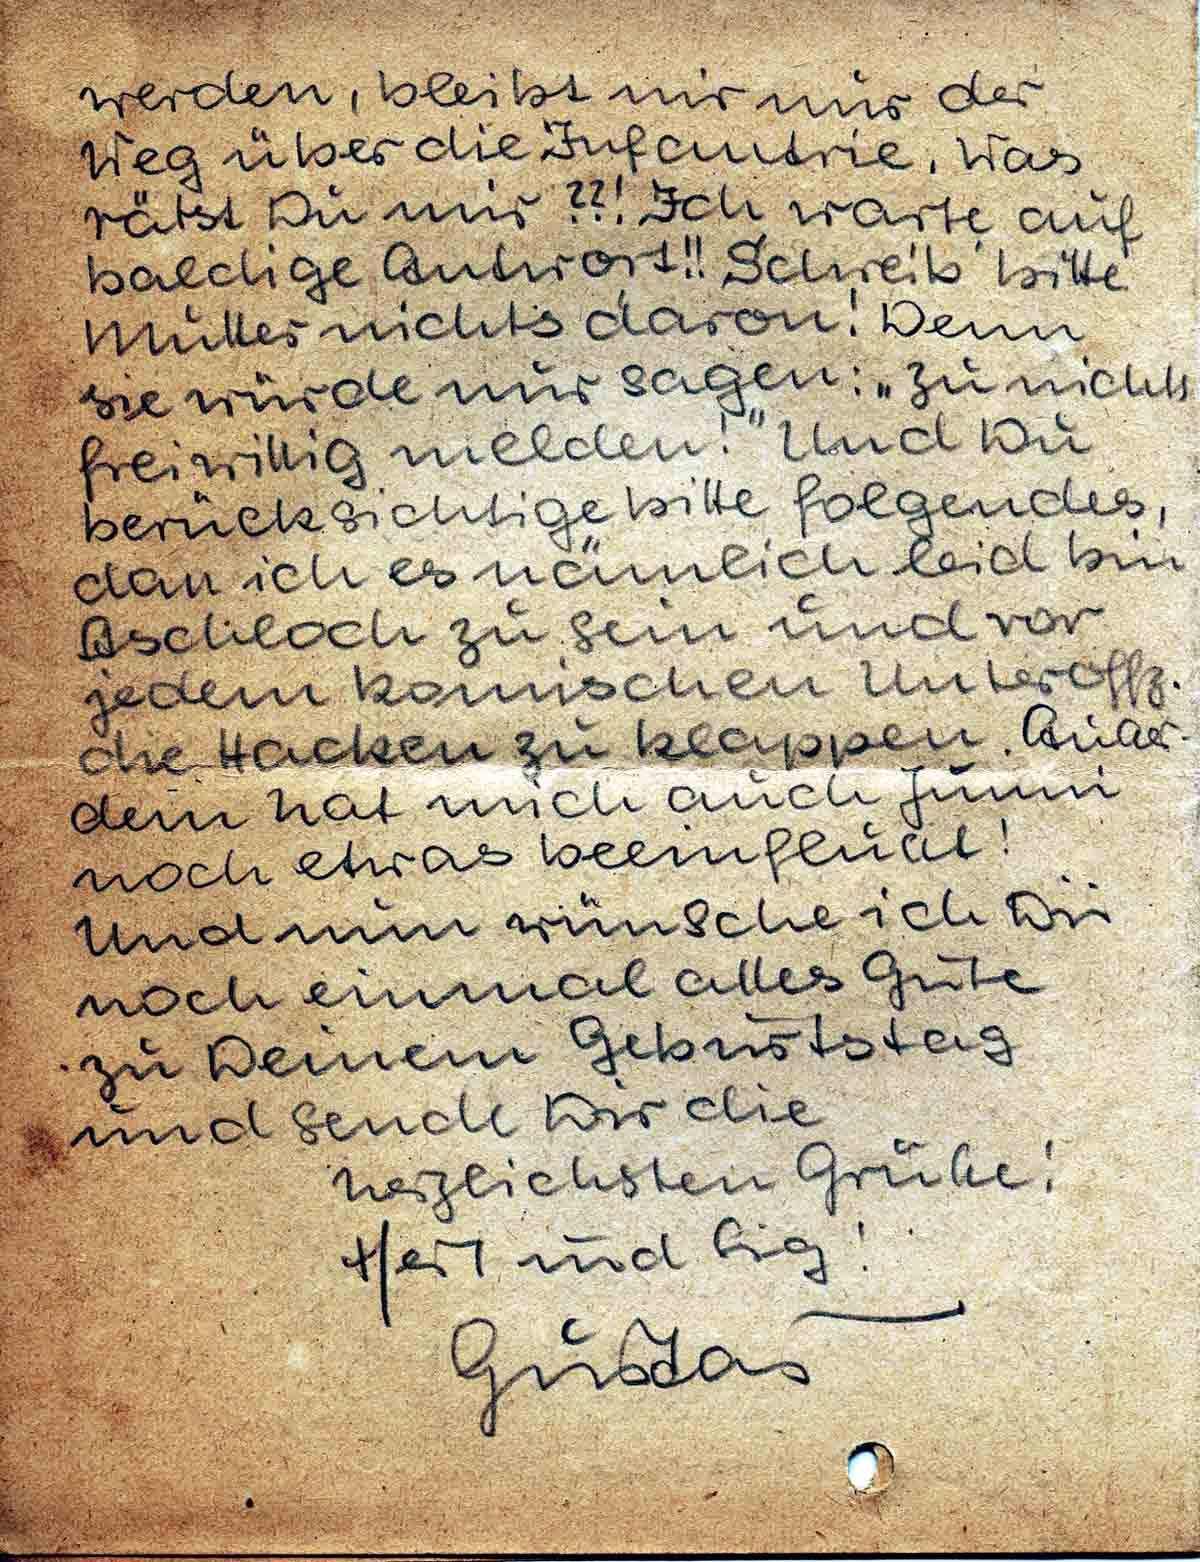 werden, bleibt mir nur der
Weg über die Infantrie. Was
rätst Du mir ??! Ich warte auf
baldige Antwort!! Schreib bitte
Mutter nichts davon! Denn
sie würde nur sagen: „Zu nichts
freiwillig melden!" Und Du
berücksichtige bitte folgendes,
daß ich es nämlich leid bin
Aschloch zu sein und vor
jedem komischen Unteroffz.
die Hacken zu klappen. Außer-
dem hat mich auch
noch etwas beeinflußt!
Und nun wünsche ich Dir
noch einmal alles Gute
zu Deinem Geburtstag
und sende Dir die
herzlichsten Grüße!
und Sieg!
Gustav